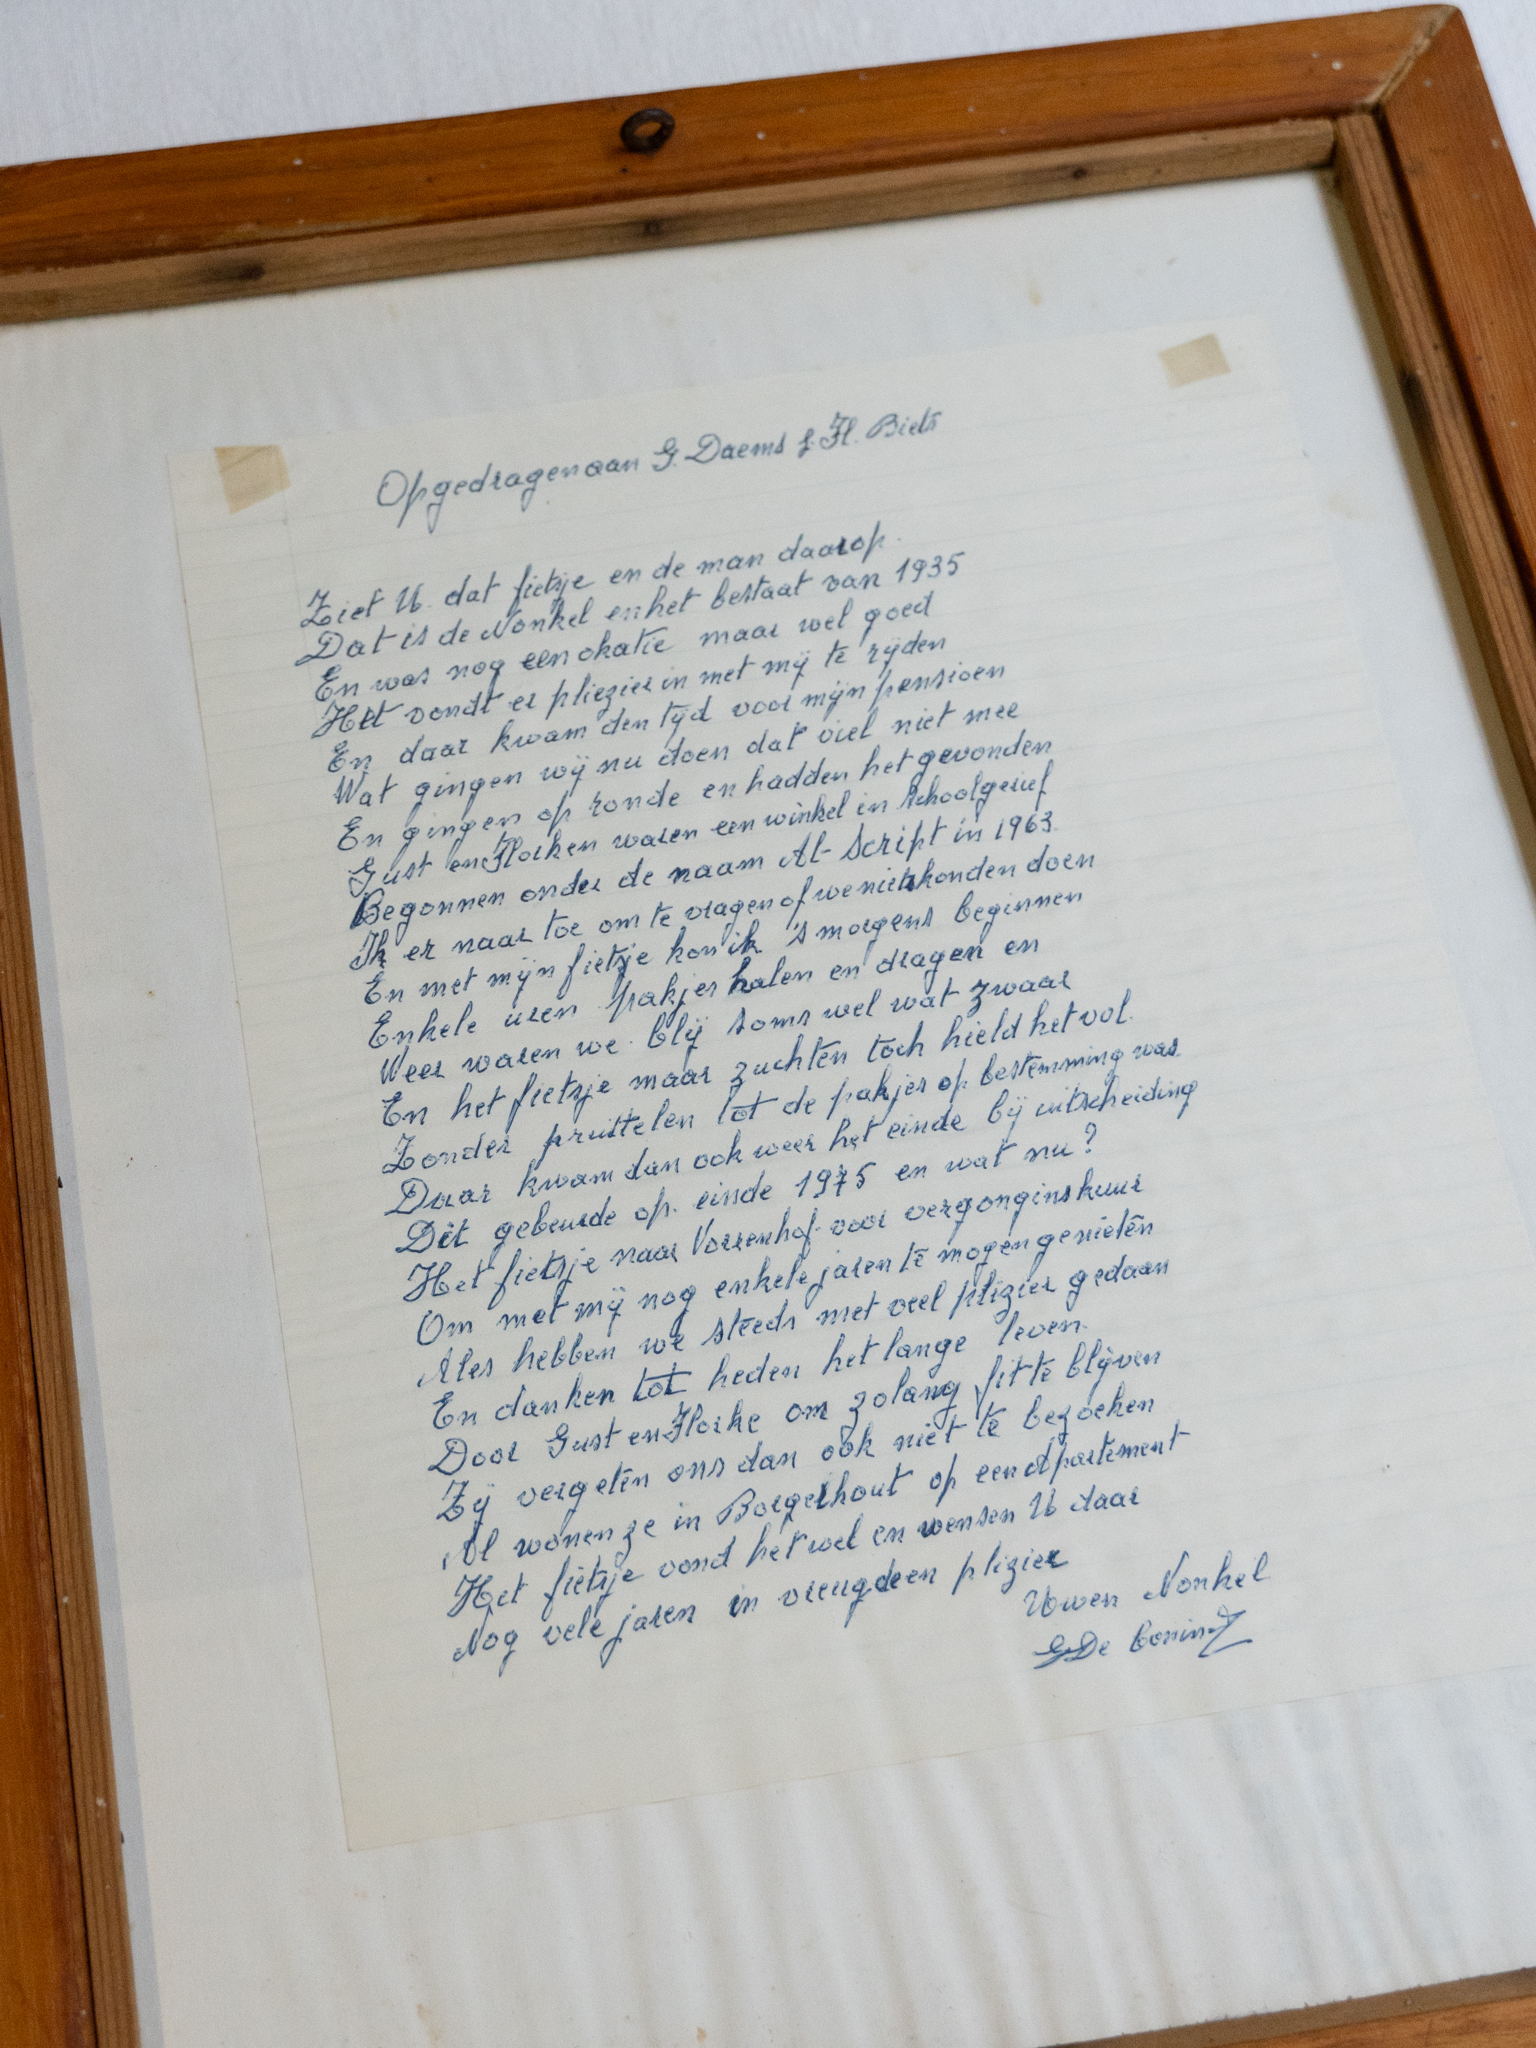 Opgedragen aan G. Daems & Fl. Biets
Ziet U. dat fietsje en de man daarop.
Dat is de Nonkel en het bestaat van 1935
En was nog een okatie maar wel goed
Het vondt er pliezier in met mij te rijden
En daar kwam den tijd voor mijn pensioen
Wat gingen wij nu doen dat viel niet mee
En gingen op ronde en hadden het gevonden
Gust en Florken waren een winkel in schoolgerief
Begonnen onder de naam Al-Script in 1963.
Ik er naar toe om te vragen of we niets konden doen
En met mijn fietsje kon ik 's morgens beginnen
Enkele uren pakjes halen en dragen en
Weer waren we blij soms wel wat zwaar
En het fietsje maar zuchten toch hield het vol.
Zonder pruttelen tot de pakjes op bestemming was.
Daar kwam dan ook weer het einde bij uitscheiding
Dit gebeurde op einde 1975 en wat nu?
Het fietsje naar Vorsenhof voor vergonginskuur
Om met mij nog enkele jaren te mogen genieten
Ales hebben we steeds met veel plizier gedaan
En danken tot heden het lange leven.
Door Gust en Florke om zolang fit te blijven
Zij vergeten ons dan ook niet te bezoeken
Al wonen ze in Borgerhout op een Apartement
Het fietsje vond het wel en wensen U daar
Nog vele jaren in vreugde en plizier
Uwen Nonkel
G De Coninck